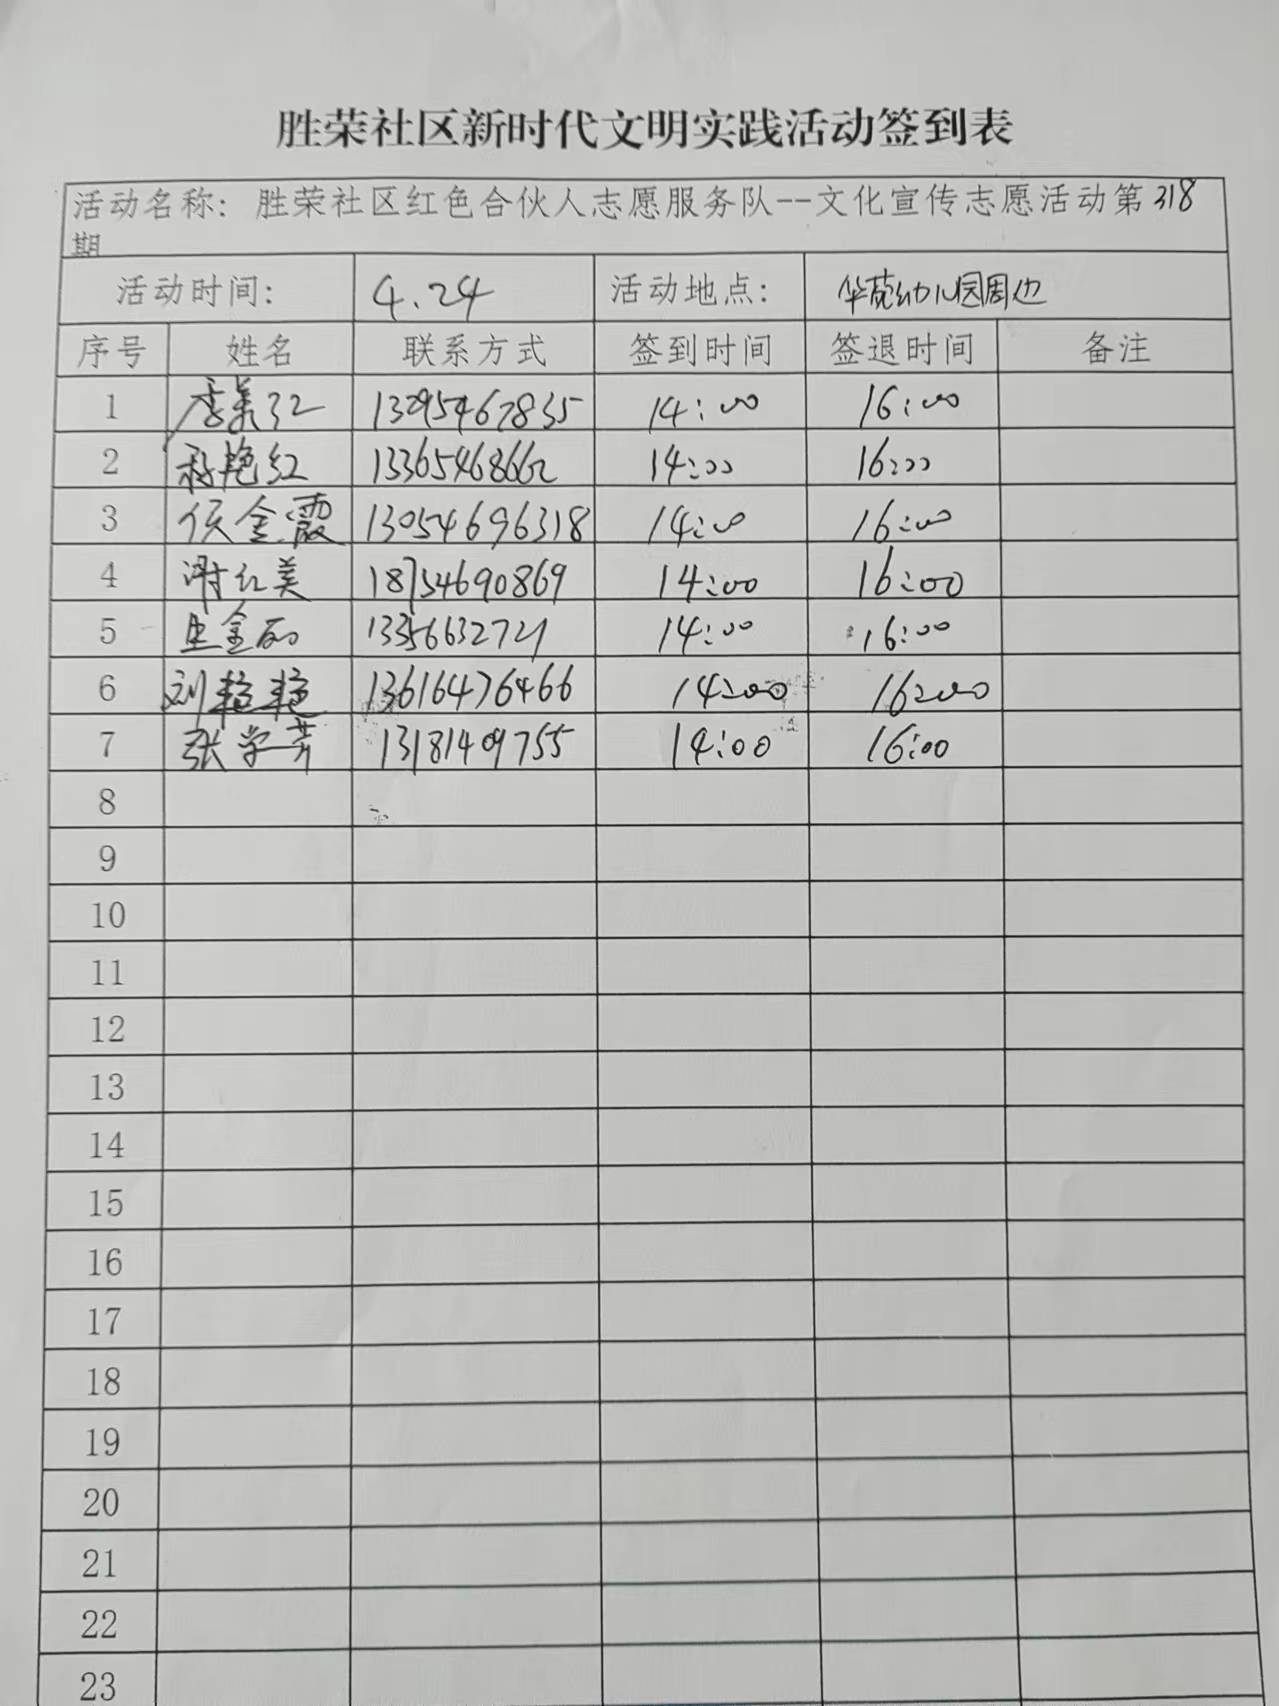 胜荣社区新时代文明实践活动签到表
活动名称：胜荣社区红色合伙人志愿服务队--文化宣传志愿活动第318
期
活动时间： 4.24 活动地点： 华苑幼儿园周边
序号 姓名 联系方式 签到时间 签退时间 备注
1 李美江 13295467835 14:00 16:00
2 艳红 13365468662 14:00 16:00
3 侯金霞 13054696318 14:00 16:00
4 谢红美 18754690869 14:00 16:00
5 金 13356632721 14:00 16:00
6 刘艳艳 13616476466 14:00 16:00
7 张学芳 13181409755 14:00 16:00
8
9
10
11
12
13
14
15
16
17
18
19
20
21
22
23